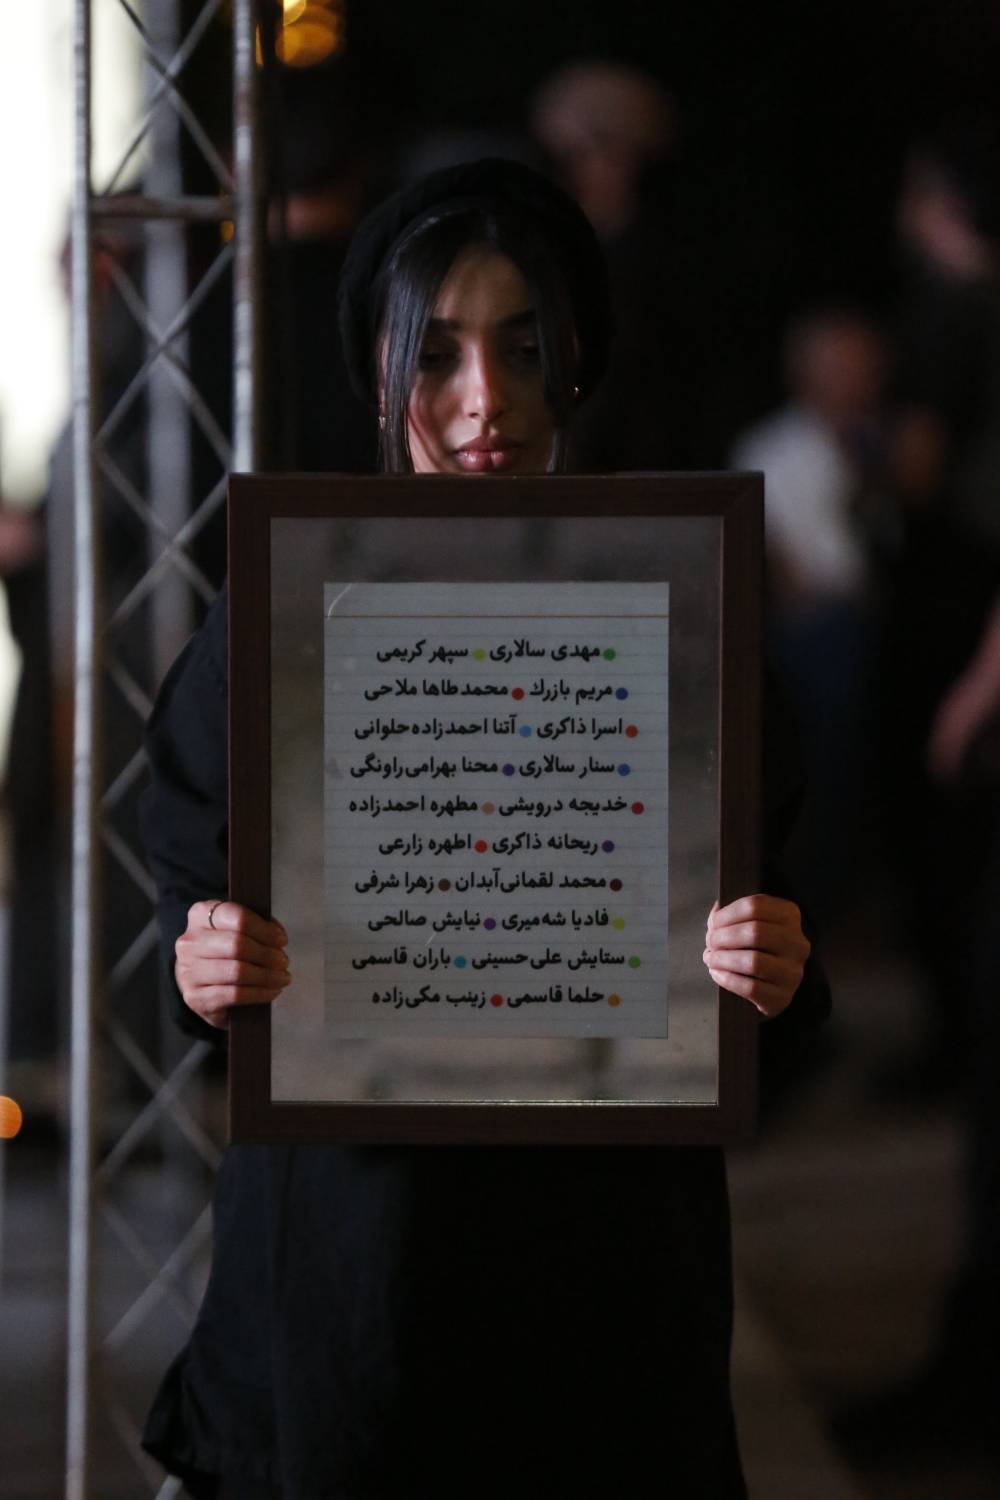 مهدی سالاری سپهر کریمی
مریم بازرك محمدطاها ملاحی
اسرا ذاکری آتنا احمدزاده‌حلوانی
سنار سالاری محنا بهرامی‌راونگی
خدیجه درویشی مطهره احمدزاده
ریحانه ذاکری اطهره زارعی
محمد لقمانی‌آبدان زهرا شرفی
فادیا شه‌میری نیایش صالحی
ستایش علی‌حسینی باران قاسمی
حلما قاسمی زینب مکی‌زاده